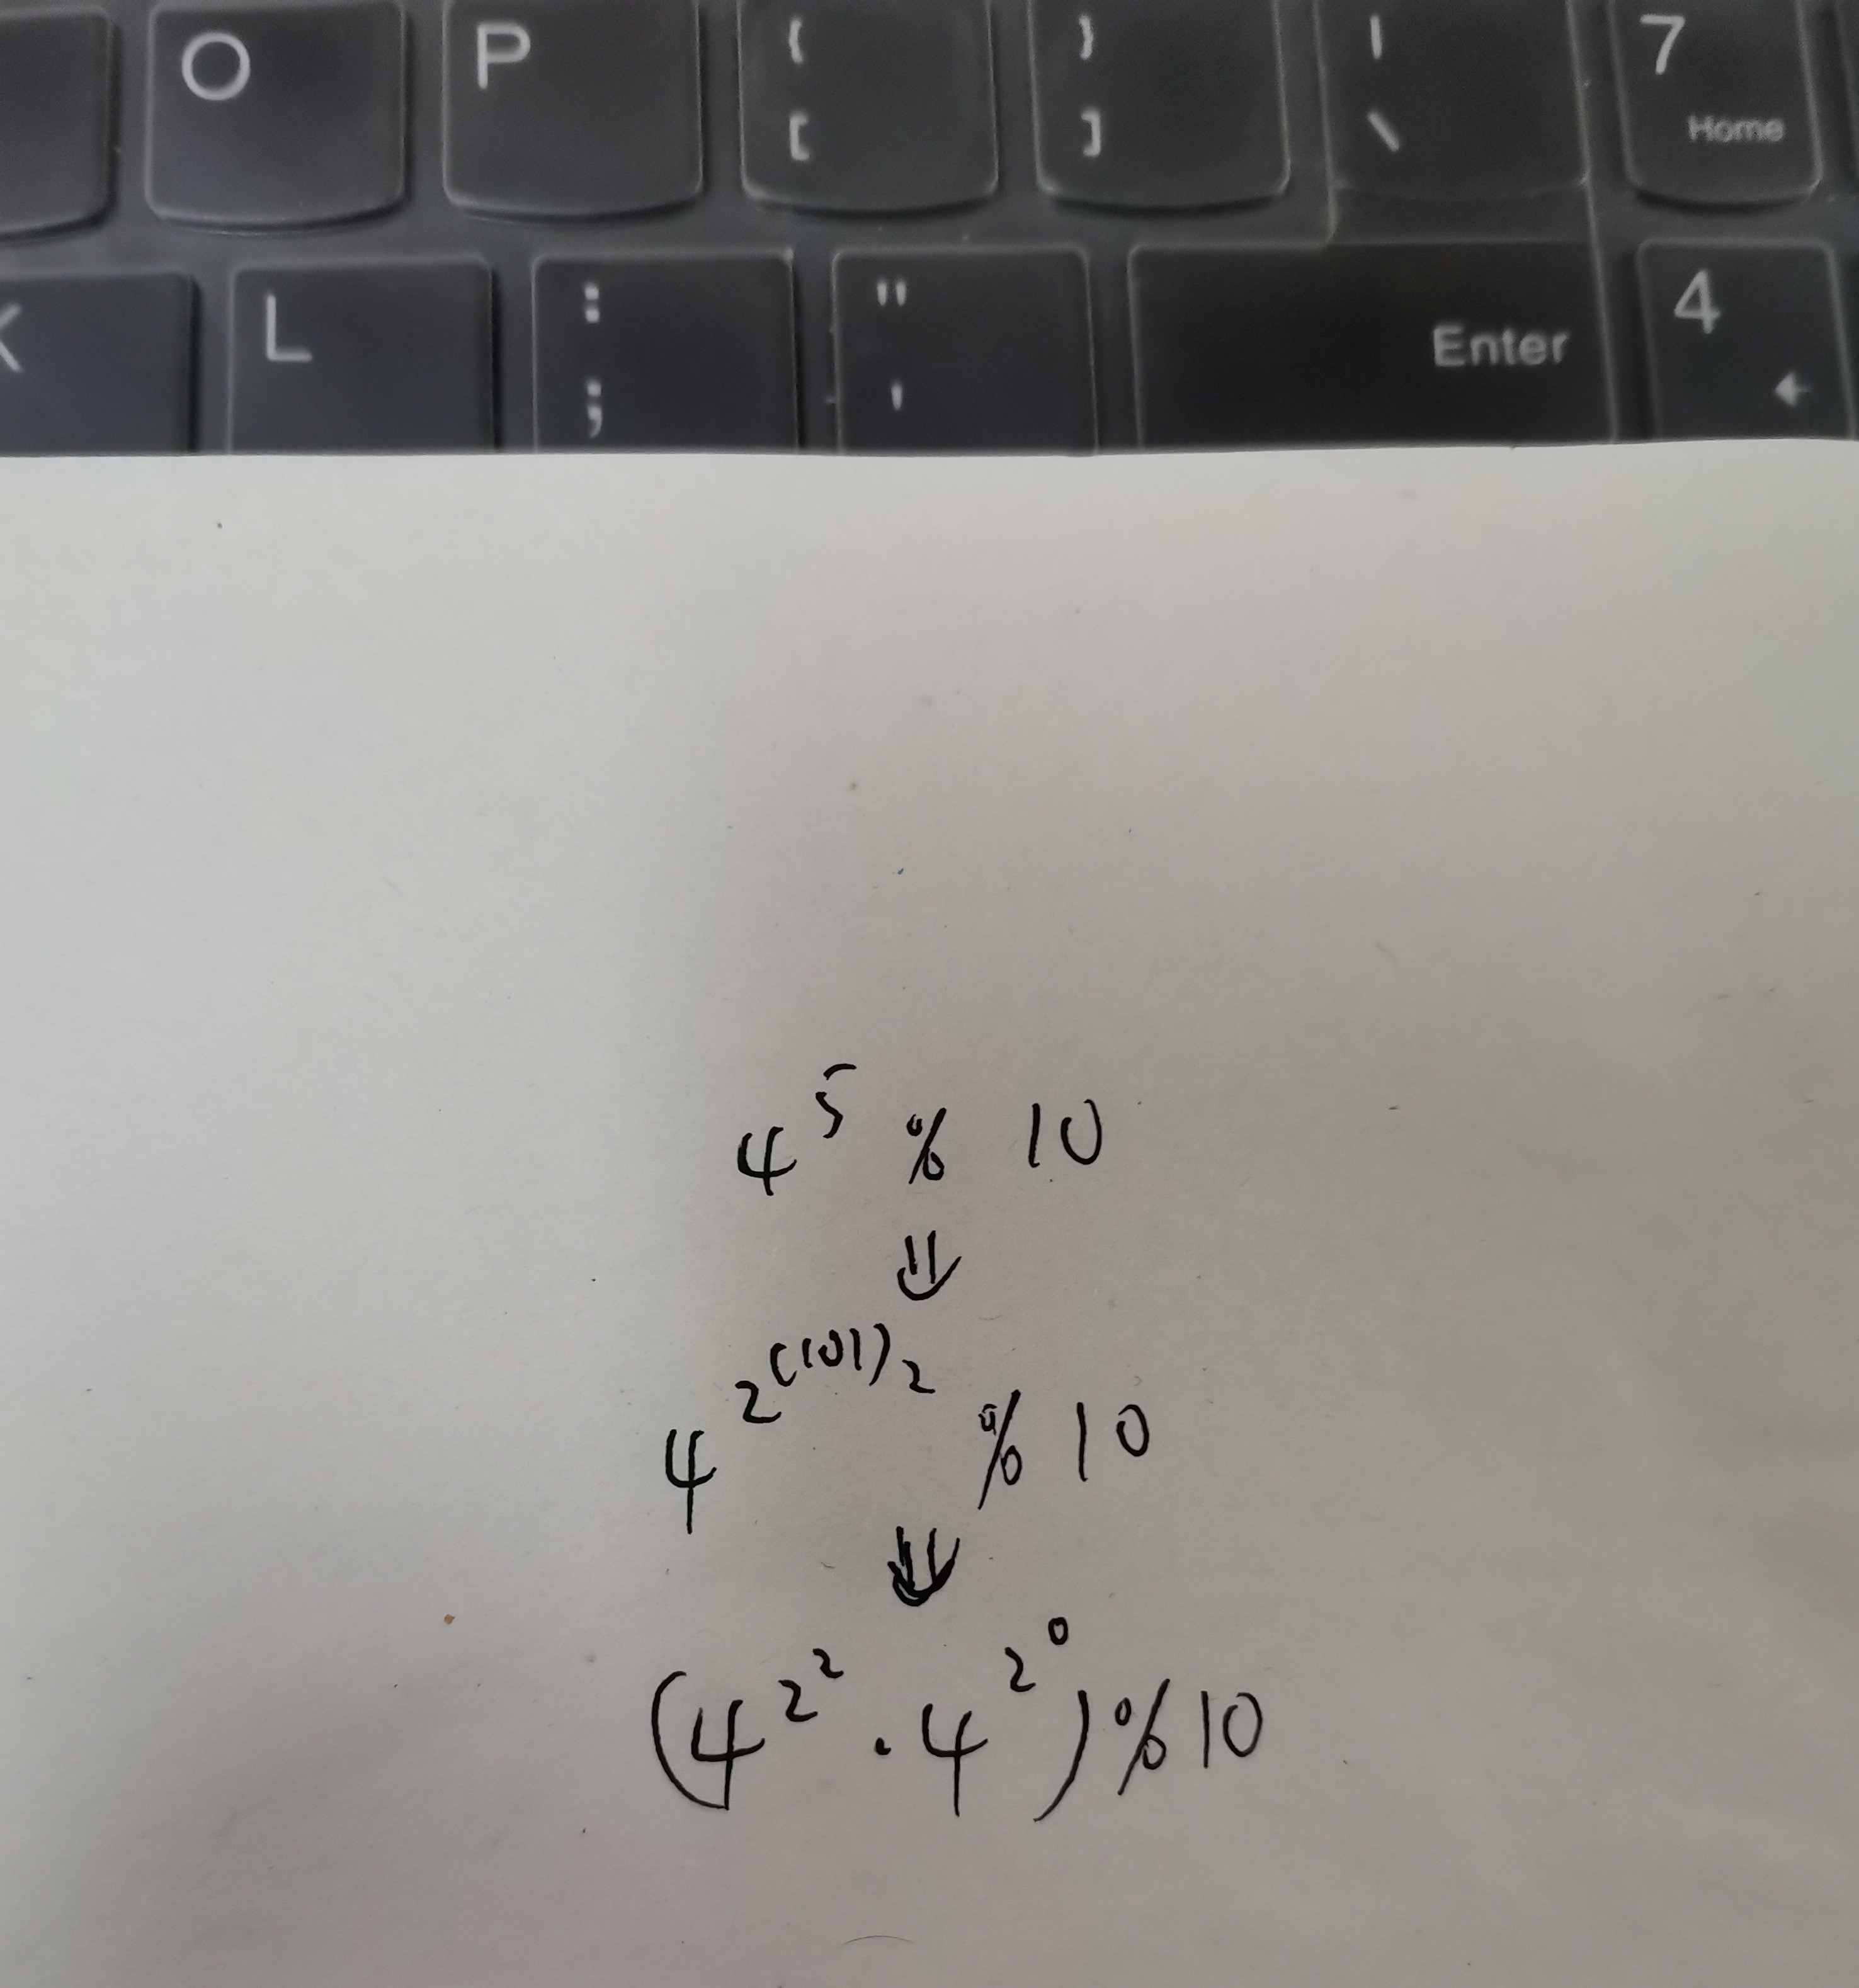 O P { } | 7
[ ] \ Home
K L : " Enter 4
; '
4^5 % 10
⇓
4^2^(101)_2 % 10
⇓
(4^2^2 · 4^2^0) % 10